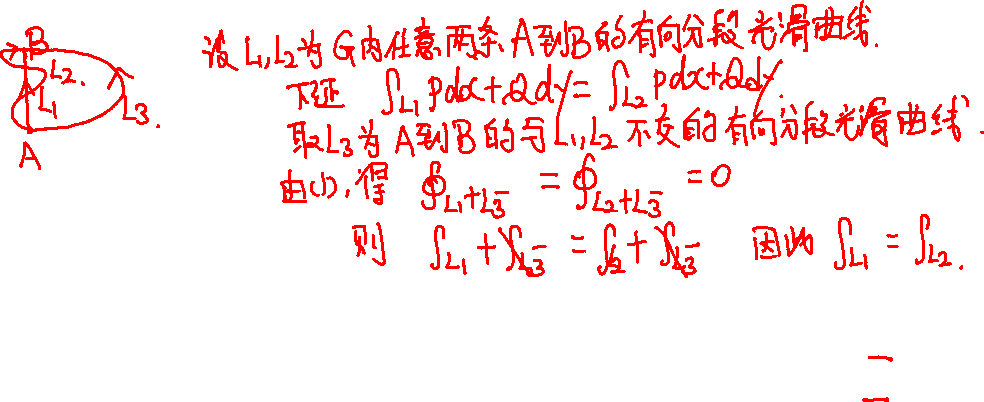 设 L₁,L₂为 G内任意两条 A到B的有向分段光滑曲线.
下证 ∫L₁ Pdx+Qdy = ∫L₂ Pdx+Qdy.
取L₃为 A到B的与L₁,L₂ 不交的有向分段光滑曲线.
由(1),得 ∮L₁+L₃⁻ = ∮L₂+L₃⁻ = 0
则 ∫L₁ + ∫L₃⁻ = ∫L₂ + ∫L₃⁻ 因此 ∫L₁ = ∫L₂.
B
L₂.
L₁
L₃.
A